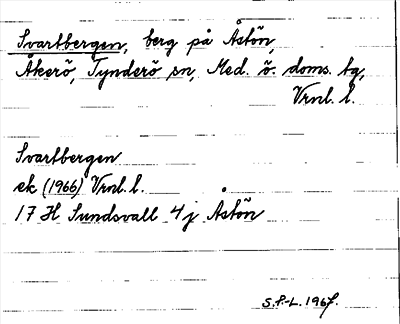 Svartbergen, berg på Åstön,
Åkerö, Tynderö sn, Med. ö. doms. tg,
Vrnl. l.
Svartbergen
ek (1966) Vrnl. l.
17 H Sundsvall 4 j Åstön
S.P.-L. 1967.